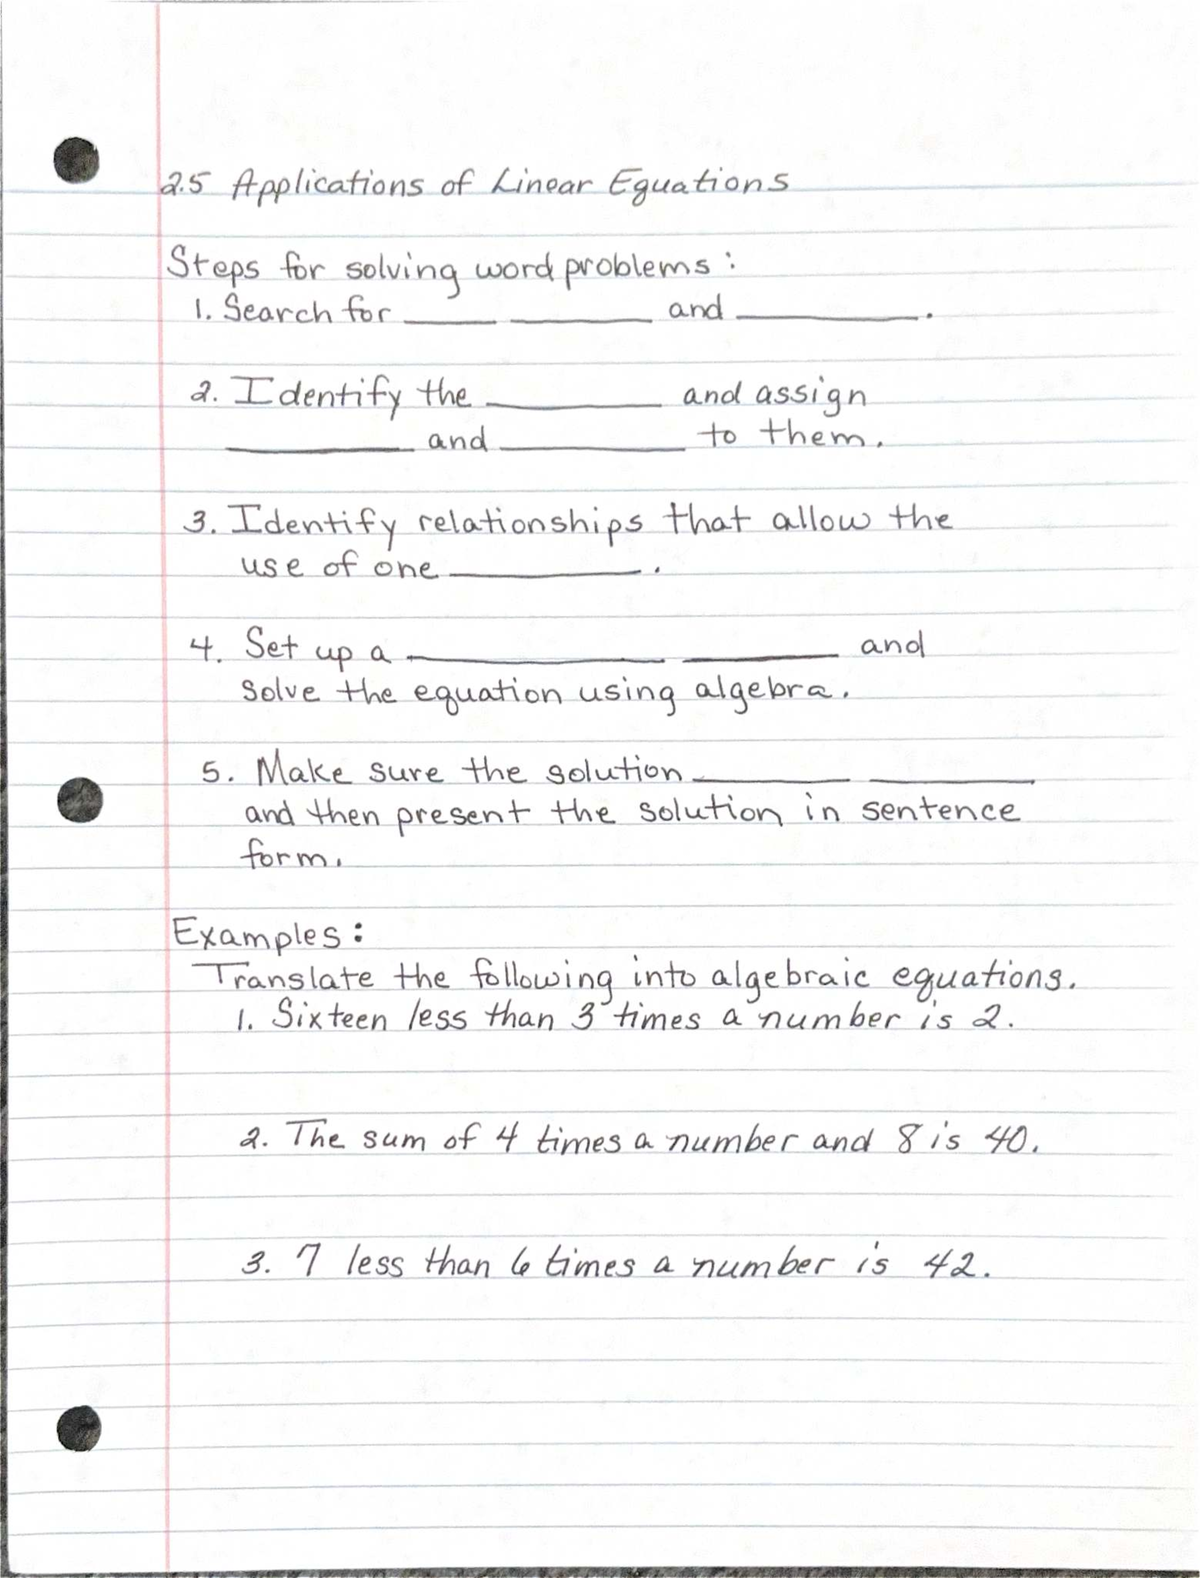 2.5 Applications of Linear Equations
Steps for solving word problems:
1. Search for ____ ____ and ____.
2. Identify the ____ and assign
____ and ____ to them.
3. Identify relationships that allow the
use of one ____.
4. Set up a ____ ____ and
solve the equation using algebra.
5. Make sure the solution ____ ____
and then present the solution in sentence
form.
Examples:
Translate the following into algebraic equations.
1. Sixteen less than 3 times a number is 2.
2. The sum of 4 times a number and 8 is 40.
3. 7 less than 6 times a number is 42.